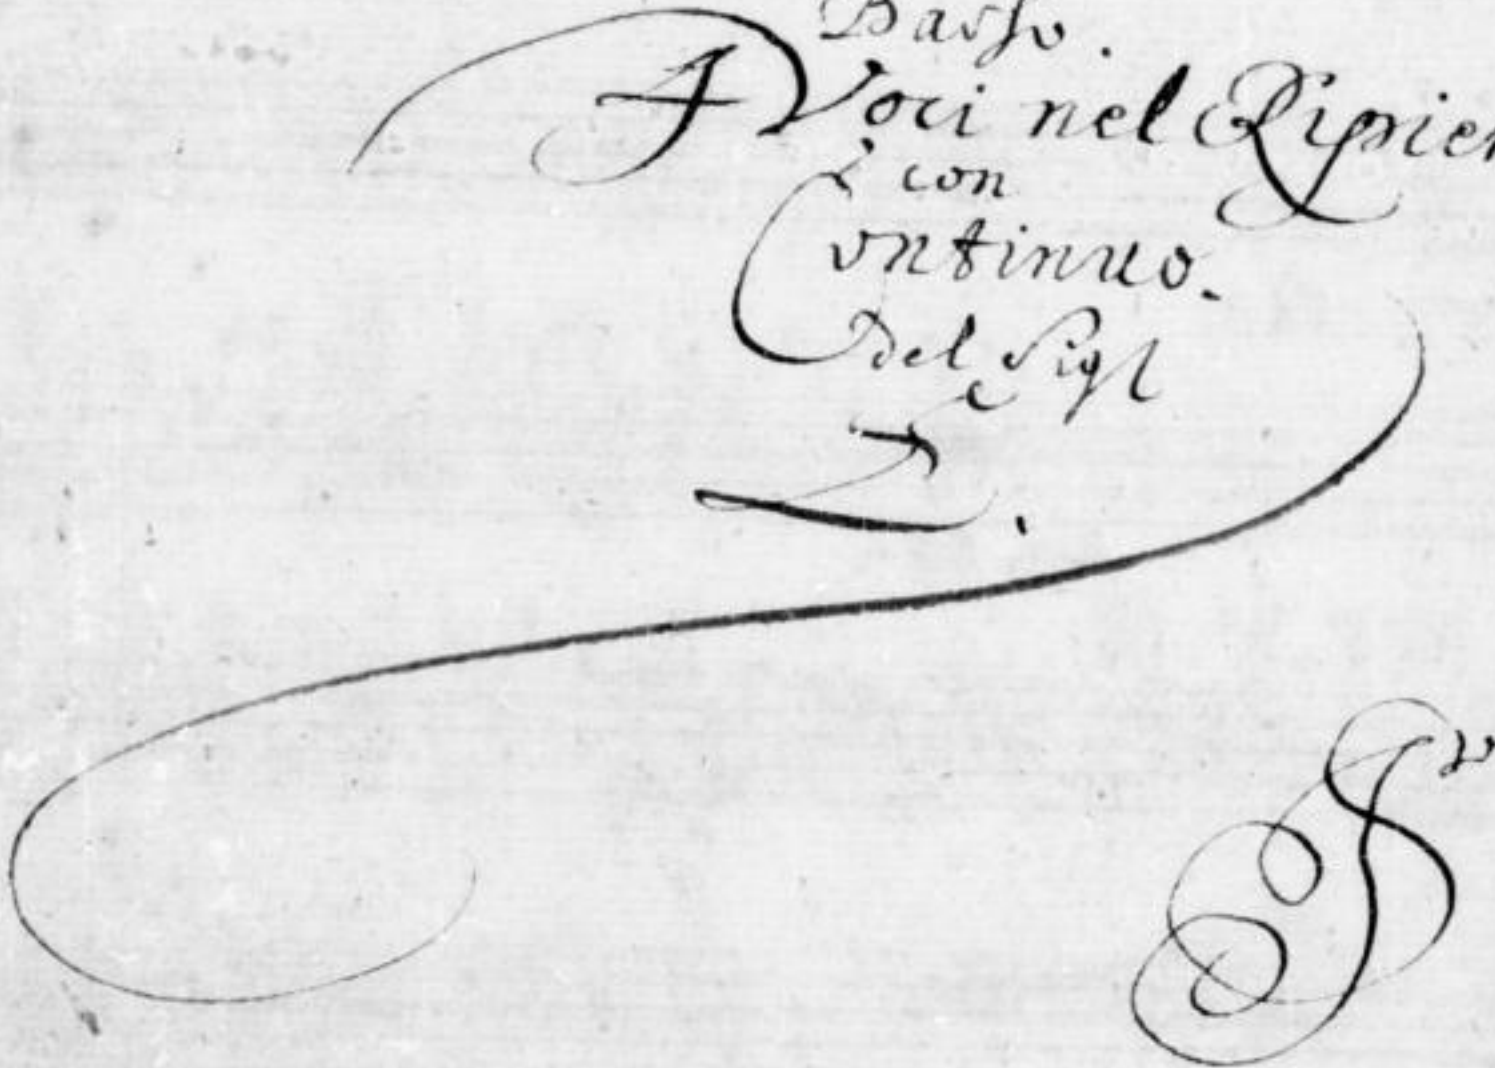 Basso.
4 Voci nel Ripien
è con
Continuo.
Del Sigl